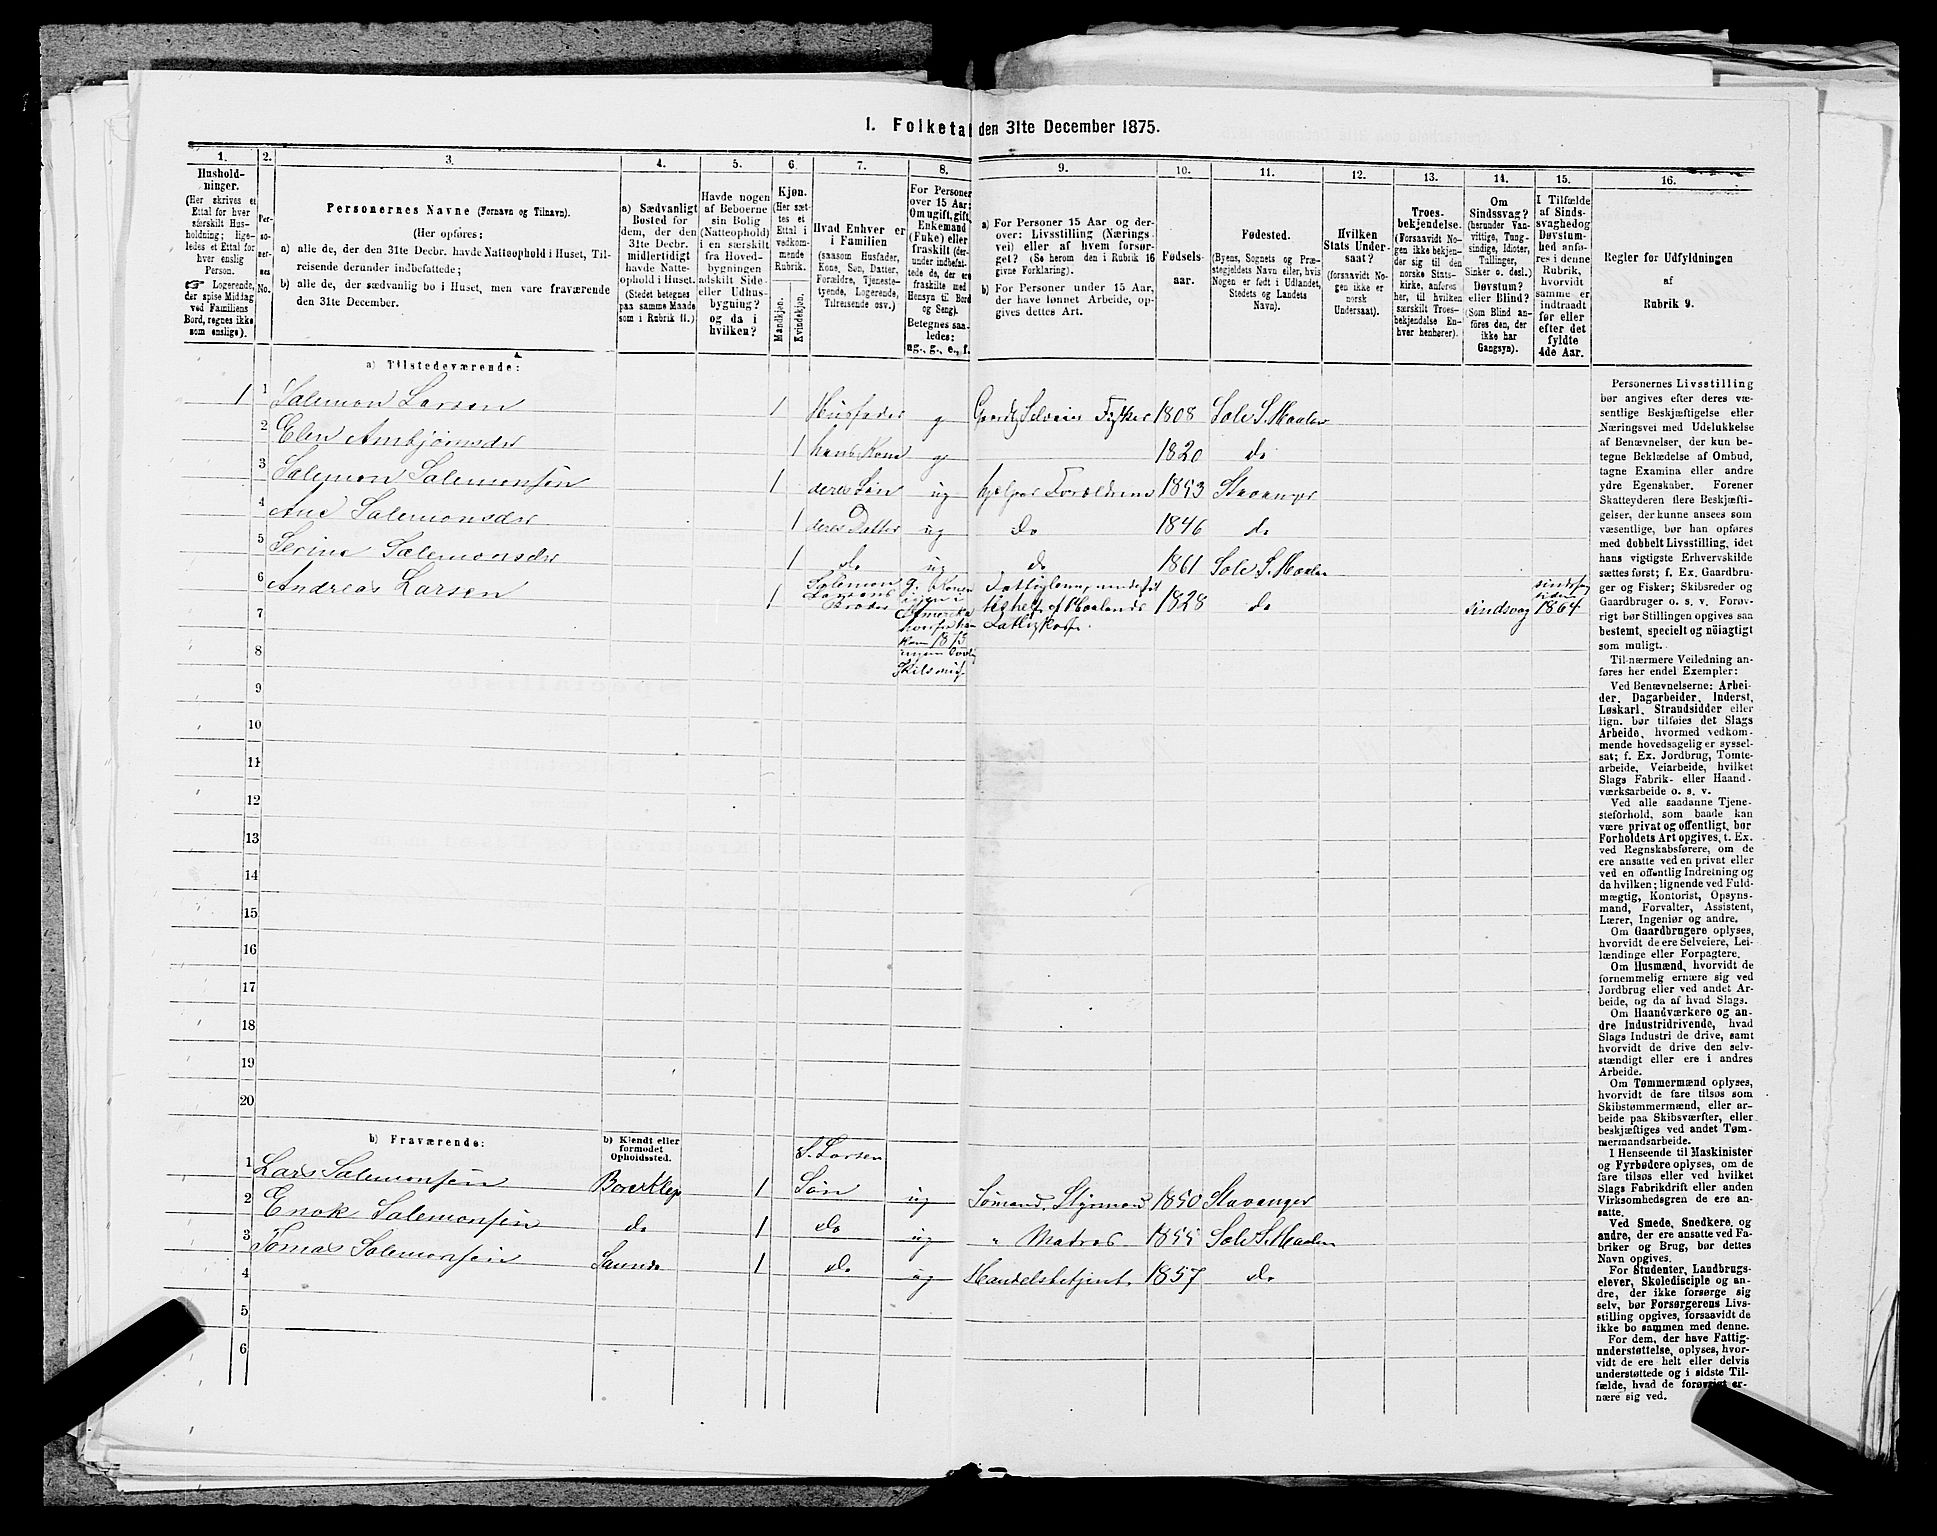 1. Folketal den 31te December 1875.
1.
2.
3.
4.
5.
6.
7.
8.
9.
10.
11.
12.
13.
14.
15.
16.
Hushold-
ninger.
(Her skrives et
Ettal for hver
særskilt Hus-
holdning; lige-
ledes et Ettal for
hver enslig
Person.
☞ Logerende,
der spise Middag
ved Familiens
Bord, regnes ikke
som enslige).
Per-
so-
ner-
nes
No.
Personernes Navne (Fornavn og Tilnavn).
(Her opføres:
a) alle de, der den 31te Decbr. havde Natteophold i Huset, Til-
reisende derunder indbefattede;
b) alle de, der sædvanlig bo i Huset, men vare fraværende
den 31te December.
a) Sædvanligt
Bosted for
dem, der den
31te Decbr.
midlertidigt
havde Natte-
ophold i Huset.
(Stedet betegnes
paa samme Maade
som i Rubrik 11.)
Havde nogen
af Beboerne
sin Bolig
(Natteophold)
i en særskilt
fra Hoved-
bygningen
adskilt Side-
eller Udhus-
bygning?
og da i
hvilken?
Kjøn.
(Her sæt-
tes et
Ettal i
vedkom-
mende
Rubrik.
Mandkjøn.
Kvindekjøn.
Hvad Enhver er
i Familien
(saasom Husfader,
Kone, Søn, Datter,
Forældre, Tjeneste-
tyende, Logerende,
Tilreisende osv.)
For Personer
over 15 Aar:
Om ugift, gift,
Enkemand
(Enke) eller
fraskilt (der-
under indbefat-
tede de, der ere
fraskilte med
Hensyn til Bord
og Seng).
Betegnes saa-
ledes:
ug., g., e., f.
a) For Personer 15 Aar og der-
over: Livsstilling (Nærings-
vei) eller af hvem forsør-
get? (Se herom den i Rubrik 16
givne Forklaring).
b) For Personer under 15 Aar,
der have lønnet Arbeide, op-
gives dettes Art.
Fødsels-
aar.
Fødested.
(Byens, Sognets og Præ-
stegjeldets Navn eller, hvis
Nogen er født i Udlandet,
Stedets og Landets
Navn).
Hvilken
Stats Under-
saat?
(forsaavidt No-
gen ikke er
norsk
Undersaat).
Troes-
bekjendelse.
(Forsaavidt No-
gen ikke bekjen-
der sig til den
norske Stats-
kirke, anføres
her, til hvilken
særskilt Troes-
bekjendelse En-
hver henhører).
Om
Sindssvag?
(herunder Van-
vittige, Tung-
sindige, Idioter,
Tullinger,
Sinker o. desl.)
Døvstum?
eller Blind?
(Som Blind an-
føres den, der
ikke har
Gangsyn).
I Tilfælde
af Sinds-
svaghed og
Døvstum-
hed anfø-
res i denne
Rubrik,
hvorvidt
samme er
indtraadt
før eller
efter det
fyldte
4de Aar.
Regler for Udfyldningen
af
Rubrik 9.
a) Tilstedeværende:
1 1 Salemon Larsen 1 Husfader g Gaardb. Selveier Fisker 1808 Sole S. Haaland
2 Elen Ambjørnsdr 1 hans Kone g 1820 do
3 Salemon Salemonsen 1 deres Søn ug hjelper Forældrene 1853 Stavanger
4 Ane Salemonsdr 1 deres Datter ug do 1846 do
5 Serine Salemonsdr 1 do ug do 1861 Sole S. Haaland
6 Andreas Larsen 1 Salemon
Larsens
Broder g. Konen
igjen i
Amerika
hvorfra han
kom 1873
uden lovlig
Skilsmisse Fattiglem, understøt-
tes helt af Haalands
Fattigkasse. 1828 do Sindsvag sindssvag
siden
1864
7
8
9
10
11
12
13
14
15
16
17
18
19
20
b) Fraværende:
b) Kjendt eller
formodet
Opholdssted.
1 Lars Salemonsen Bore Klep 1 S. Larsen
Søn ug Sømand, Styrmand 1850 Stavanger
2 Enok Salemonsen do 1 do ug " Matros 1855 Sole S. Haaland
3 Tomas Salemonsen 1 do ug Handelsbetjent. 1857 do
4
5
6
Personernes Livsstilling
bør angives efter deres væ-
sentlige Beskjæftigelse eller
Næringsvei med Udelukkelse
af Benævnelser, der kun be-
tegne Beklædelse af Ombud,
tagne Examina eller andre
ydre Egenskaber. Forener
Skatteyderen flere Beskjæfti-
gelser, der kunne ansees som
væsentlige, bør han opføres
med dobbelt Livsstilling, idet
hans vigtigste Erhvervskilde
sættes først; f. Ex. Gaardbru-
ger og Fisker; Skibsreder og
Gaardbruger o. s. v. Forøv-
rigt bør Stillingen opgives saa
bestemt, specielt og nøiagtigt
som muligt.
Til nærmere Veiledning an-
føres her endel Exempler:
Ved Benævnelserne: Arbei-
der, Dagarbeider, Inderst,
Løskarl, Strandsidder eller
lign. bør tilføies det Slags
Arbeide, hvormed vedkom-
mende hovedsagelig er syssel-
sat; f. Ex. Jordbrug, Tomte-
arbeide, Veiarbeide, hvilket
Slags Fabrik- eller Haand-
værksarbeide o. s. v.
Ved alle saadanne Tjene-
steforhold, som baade kan
være privat og offentligt, bør
Forholdets Art opgives, t. Ex.
ved Regnskabsførere, om de
ere ansatte ved en privat eller
ved en offentlig Indretning og
da hvilken; lignende ved Fuld-
mægtig, Kontorist, Opsyns-
mand, Forvalter, Assistent,
Lærer, Ingeniør og andre.
Om Gaardbrugere oplyses,
hvorvidt de ere Selveiere, Lei-
lændinge eller Forpagtere.
Om Husmænd, hvorvidt de
fornemmelig ernære sig ved
Jordbrug eller ved andet Ar-
beide, og da af hvad Slags.
Om Haandværkere og an-
dre Industridrivende, hvad
Slags Industri de drive, samt
hvorvidt de drive den selv-
stændigt eller ere i andres
Arbeide.
Om Tømmermænd oplyses,
hvorvidt de fare tilsøs som
Skibstømmermænd, eller ar-
beide paa Skibsværfter, eller
beskjæftiges ved andet Tøm-
mermandsarbeide.
I Henseende til Maskinister
og Fyrbødere oplyses, om de
fare tilsøs eller ved hvilket
Slags Fabrikdrift eller anden
Virksomhedsgren de ere an-
satte.
Ved Smede, Snedkere, og
andre, der ere ansatte ved Fa-
briker og Brug, bør dettes
Navn opgives.
For Studenter, Landbrugs-
elever, Skoledisciple og an-
dre, der ikke forsørge sig
selv, bør Forsørgerens Livs-
stilling opgives, forsaavidt de
ikke bo sammen med denne.
For dem, der have Fattig-
understøttelse, oplyses, hvor-
vidt de ere helt eller delvis
understøttede og i sidste Til-
fælde, hvad de forøvrigt er-
nære sig ved.